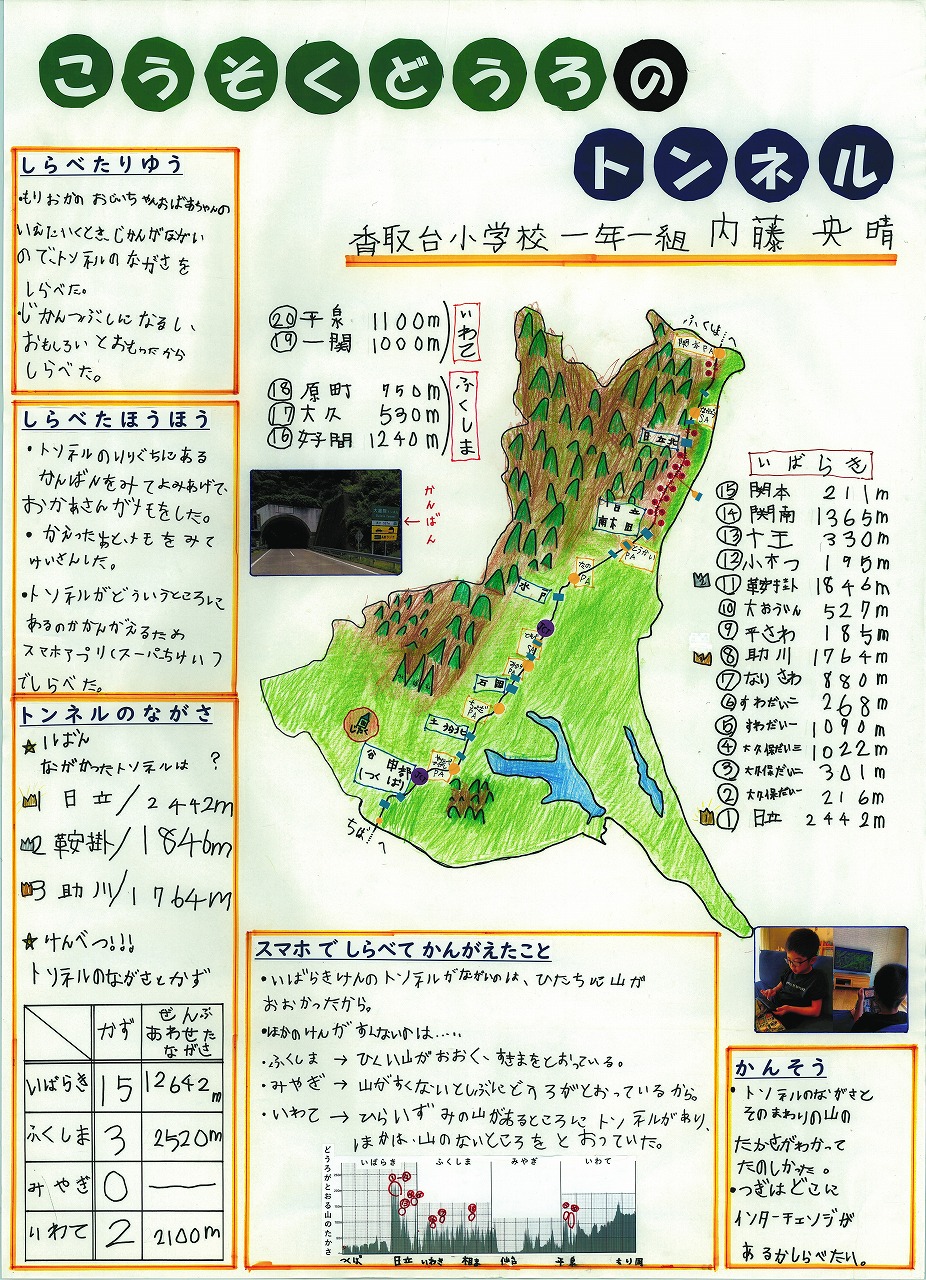 こうそくどうろの
トンネル
香取台小学校 一年一組 内藤 央晴
しらべたりゆう
・もりおかの おじいちゃんおばあちゃんの
いえにいくとき、じかんがながい
ので、トンネルのながさを
しらべた。
・じかんつぶしになるし、
おもしろいとおもったから
しらべた。
しらべたほうほう
・トンネルのいりぐちにある
かんばんをみてよみあげて、
おかあさんがメモをした。
・かえったあとメモをみて
けいさんした。
・トンネルがどういうところに
あるのかかんがえるため
スマホアプリ(スーパーちけい)
でしらべた。
トンネルのながさ
☆1ばん
ながかったトンネルは ?
1 日立/2442m
2 鞍掛/1846m
3 助川/1764m
☆けんべつ!!!
トンネルのながさとかず
かず ぜんぶあわせたながさ
いばらき 15 12642m
ふくしま 3 2520m
みやぎ 0 ―
いわて 2 2100m
⑳平泉 1100m
⑲一関 1000m
いわて
⑱原町 750m
⑰大久 530m
⑯好間 1240m
ふくしま
かんばん
←
いばらき
⑮関本 211m
⑭関南 1365m
⑬十王 330m
⑫小木つ 195m
⑪鞍掛 1846m
⑩大おういん 527m
⑨平さわ 185m
⑧助川 1764m
⑦なりさわ 880m
⑥すわだい二 268m
⑤すわだい一 1090m
④大久保だい三 1022m
③大久保だい二 301m
②大久保だい一 216m
①日立 2442m
ふくしまへ
関本PA
日立北
日立南太田
とうかいPA
PA
水戸
石岡
PA
土浦北
谷田部
(つくば)
ちばへ
スマホでしらべてかんがえたこと
・いばらきけんのトンネルがながいのは、ひたちに山が
おおかったから。
・ほかのけんがすくないのは……
・ふくしま → ひくい山がおおく、すきまをとおっている。
・みやぎ → 山がすくないとしぶにどうろがとおっているから。
・いわて → ひらいずみの山があるところにトンネルがあり、
ほかは、山のないところをとおっていた。
どうろがとおる山のたかさ
いばらき ふくしま みやぎ いわて
つくば 日立 いわき 相ま 仙台 平泉 もり岡
かんそう
・トンネルのながさと
そのまわりの山の
たかさがわかって
たのしかった。
・つぎはどこに
インターチェンジが
あるかしらべたい。